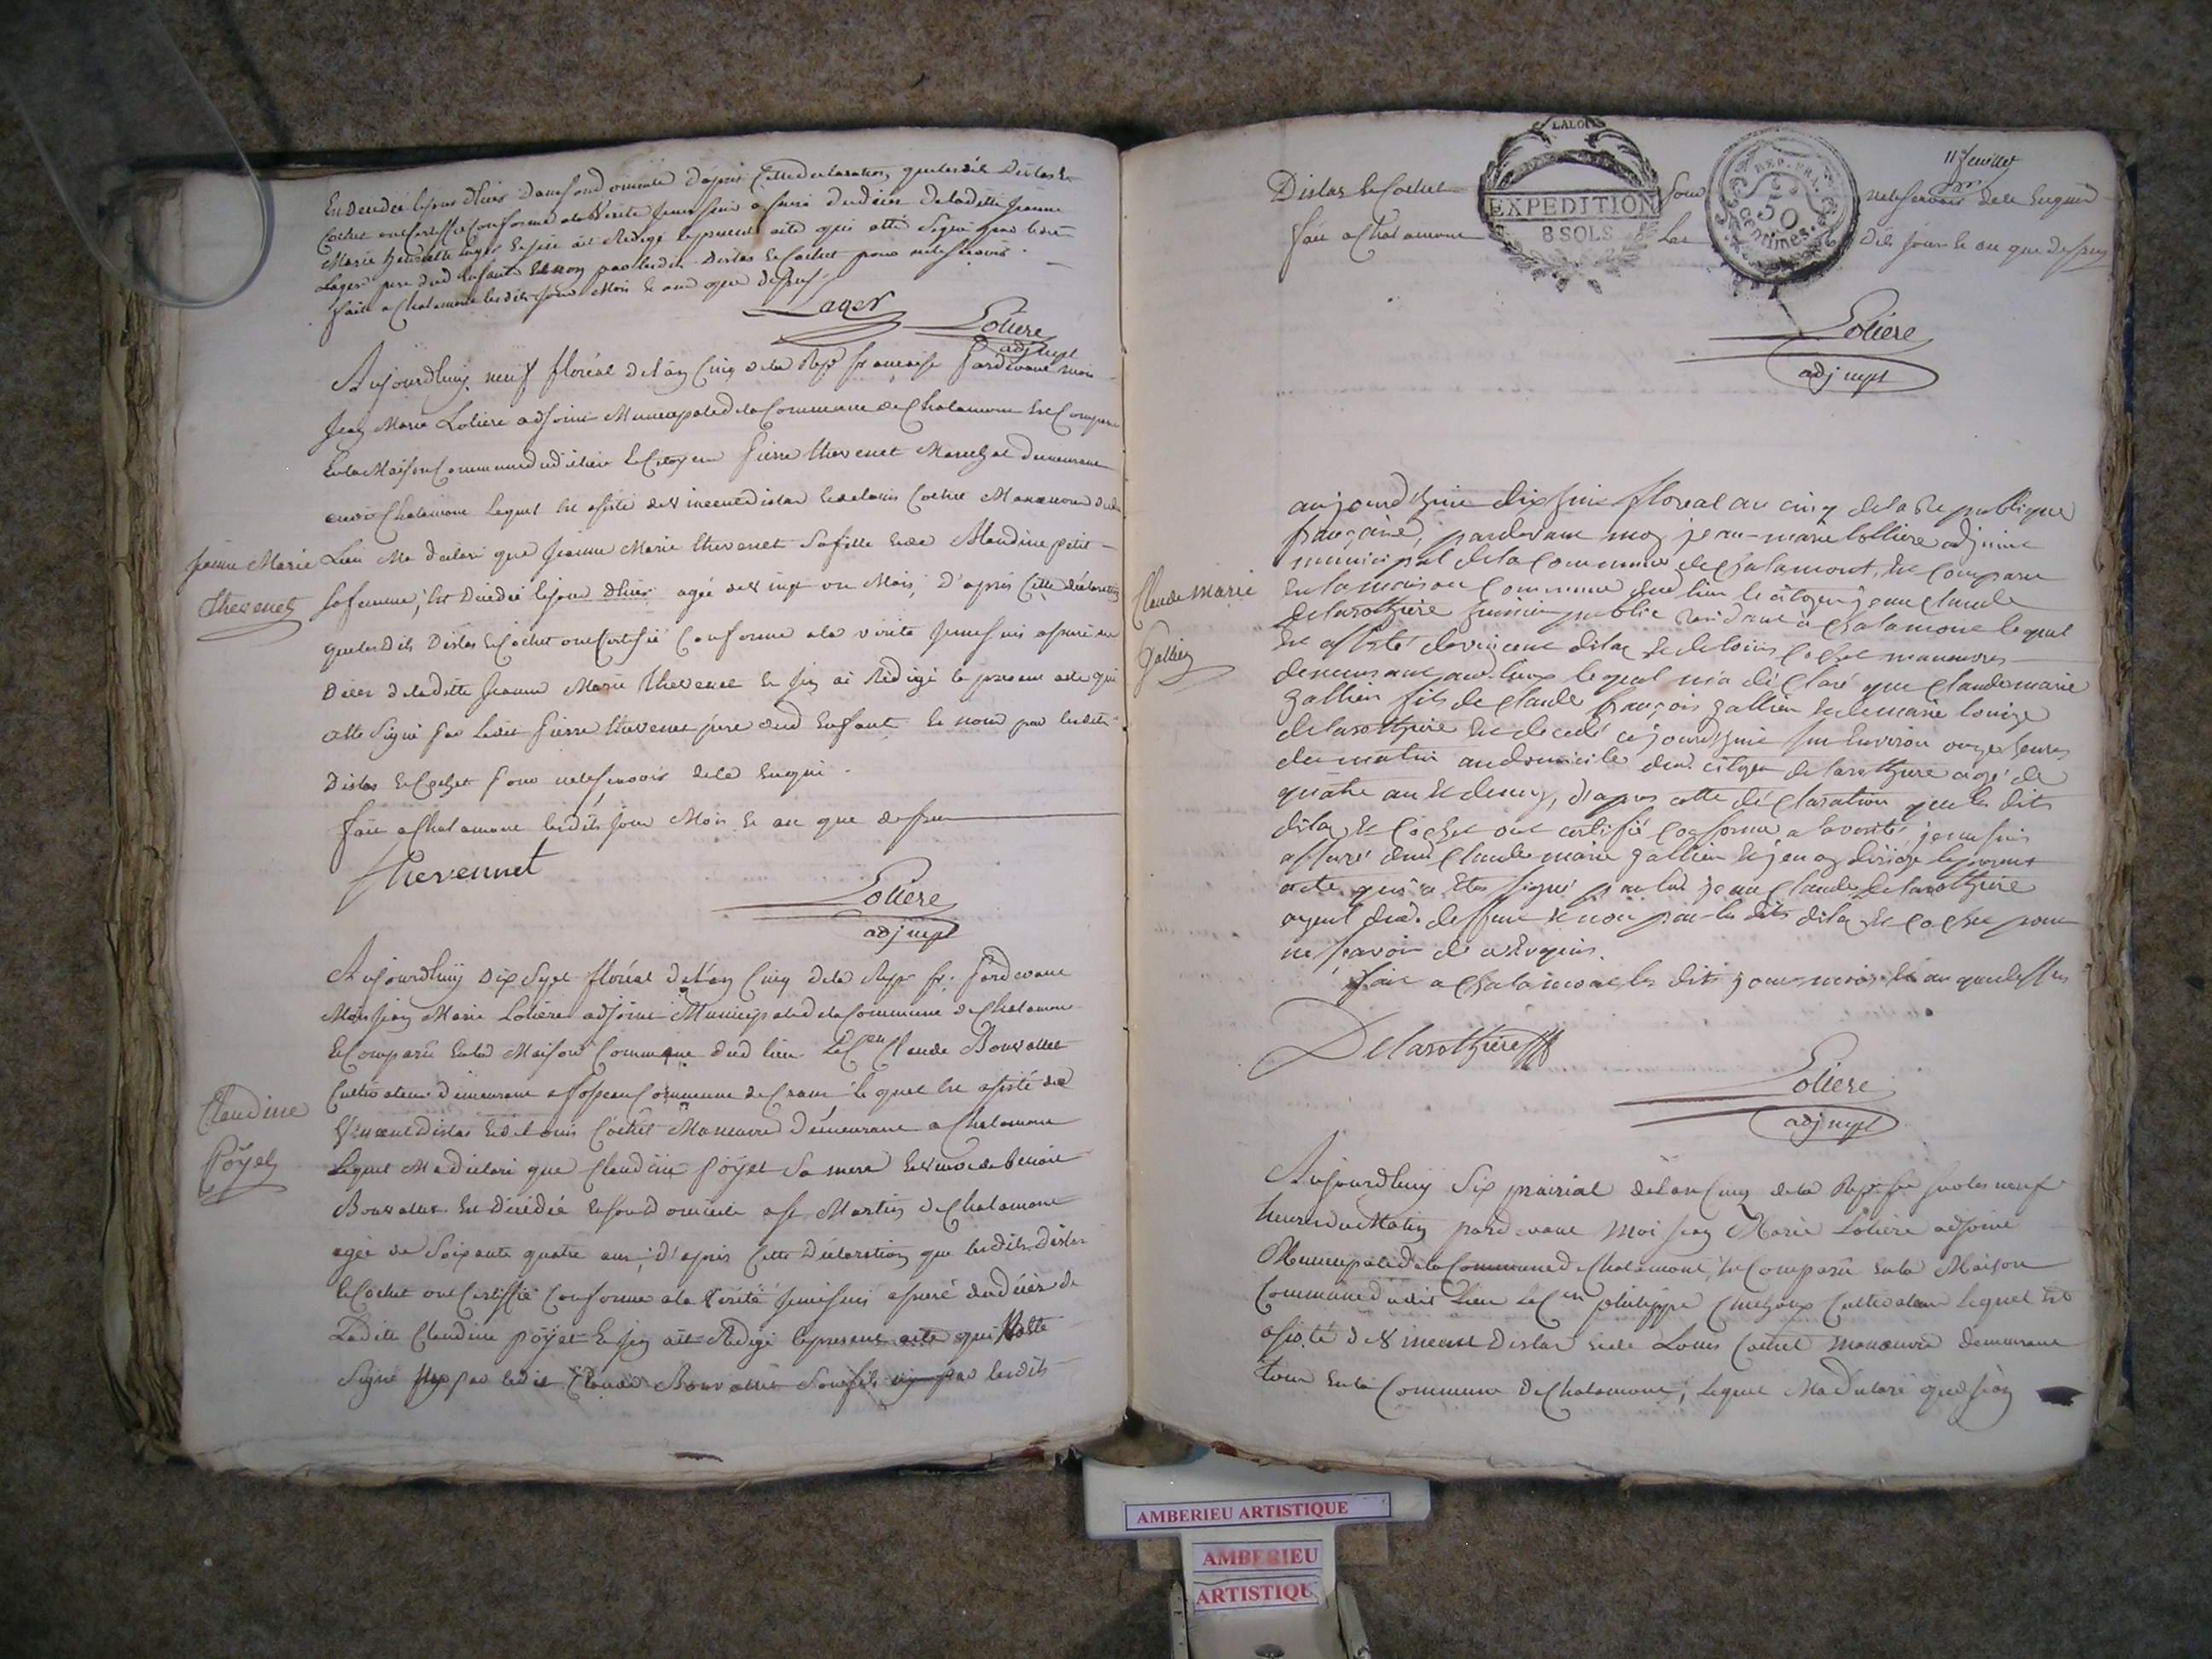 Est Decedée le jour d'hier dans son domicile d'apres Cette declaration que les dits Dislas et
Cochet ont certiffié Conforme a la Verité je me suis assuré du deces de la ditte jeanne
Marie Lager et j'en ait Redigé le present acte qui atté Signé par le dit
Lager pere dud Enfant et non par les dits Dislas et Cochet pour ne le savoir
fait a Chalamont les dits jour Mois et an que dessus
Lager
Loliere
adj mpl
Aujourdhuy neuf floréal de l'an Cinq de la Rep francaise Pardevant moi
Jean Marie Loliere adjoint Municipal de la Commune de Chalamont Est Comparu
En la Maison Commune dudit lieu Le Citoyen Pierre thevenet Marechal demeurant
Chalamont Lequel Est assisté de Vincent dislas et de Louis Cochet Manoeuvre dud
Jeanne Marie
Thevenet
Lieu Ma declaré que Jeanne Marie thevenet Sa fille et de Claudine petit
Sa femme, Est Decedée le jour d'hier agée de Vingt un Mois, D'apres Cette declaration
que les Dits Dislas et Cochet ont Certifié Conforme a la verité Je me suis assuré du
Déces de la ditte Jeanne Marie thevenet Et j'en ai Redigé le present acte qui
atté Signé Par Ledit Pierre thevenet pere dud Enfant Et non par les dits
Dislas et Cochet pour ne le savoir de ce Enquis
fait a Chalamont les dits jour Mois et an que dessus
Thevennet
Loliere
adj mpl
Aujourdhuy Dix Sept floréal de l'an Cinq de la Rep fr. Pardevant
Moi Jean Marie Loliere adjoint Municipal de la Commune de Chalamont
Est Comparu En la Maison Commune dud lieu Le Cen Claude Bouvallet
Cultivateur demeurant a Commune de Crans lequel Est assisté de
Claudine
Poÿet
Vincent Dislas et de Louis Cochet Manoeuvre Demeurant a Chalamont
Lequel Ma declaré que Claudine Poÿet Sa mere et Veuve de benoit
Bouvallet Est Décédée En son Domicile a St Martin de Chalamont
agée de Soixante quatre ans, D'apres Cette Déclaration que les dits Dislas
et Cochet ont Certiffié Conforme a la Verité Je me suis assuré du déces de
Laditte Claudine Poÿet Et j'en ait Redigé le present acte qui atté
Signé par ledit Claude Bouvallet Son fils par les dits
11e feuillet
LA LOI
EXPEDITION
8 SOLS
REP. FRA.
50
Centimes
Dislas et Cochet Pour ne le Savoir de ce Enquis
fait a Chalamont Les Dits Jour et an que dessus
Loliere
adj mpl
aujourd'huit dix huit floreal an cinq de la Republique
française, pardevant moy jean-marie lolliere adjoint
municipal de la Commune de Chalamont, Est Comparu
Claude marie
Gallien
En la maison Commune dud lieu le citoyen jean Claude
Delarothiere public Residant à Chalamont lequel
Est assisté de vincent dislas et de louis Cochet manoeuvres
demeurant aud. lieu lequel m'a déclaré que Claude marie
gallien fils de Claude françois gallien et de marie louize
delarothiere Est decedé cejourd'huit sur Environ onze heures
du matin au domicile dud. citoyen delarothiere agé de
quatre an et demy, d'apres cette déclaration que les dits
dislas et Cochet ont certifié Conforme a la verité, je me suis
assuré dud Claude marie gallien Et j'en ay dirigé le present
acte qui a Eté signé par led jean Claude Delarothiere
ayeul dud. deffunt et non par les dits dislas et Cochet pour
ne savoir de ce Enquis.
fait a Chalamont les dits jour mois et an que dessus
Delarothiere
Loliere
adj mpl
Aujourdhuy Six prairial de l'an Cinq de la Rep fse Sur les neuf
heures du Matin pardevant Moi Jean Marie Loliere adjoint
Municipal de la Commune de Chalamont, Est Comparu En la Maison
Commune dudit Lieu Le Cen philippe Cultivateur Lequel Est
assisté de Vincent Dislas et de Louis Cochet manoeuvre demeurant
tous En la Commune de Chalamont, Lequel Ma Declaré que Jean
AMBERIEU ARTISTIQUE
AMBERIEU
ARTISTIQU